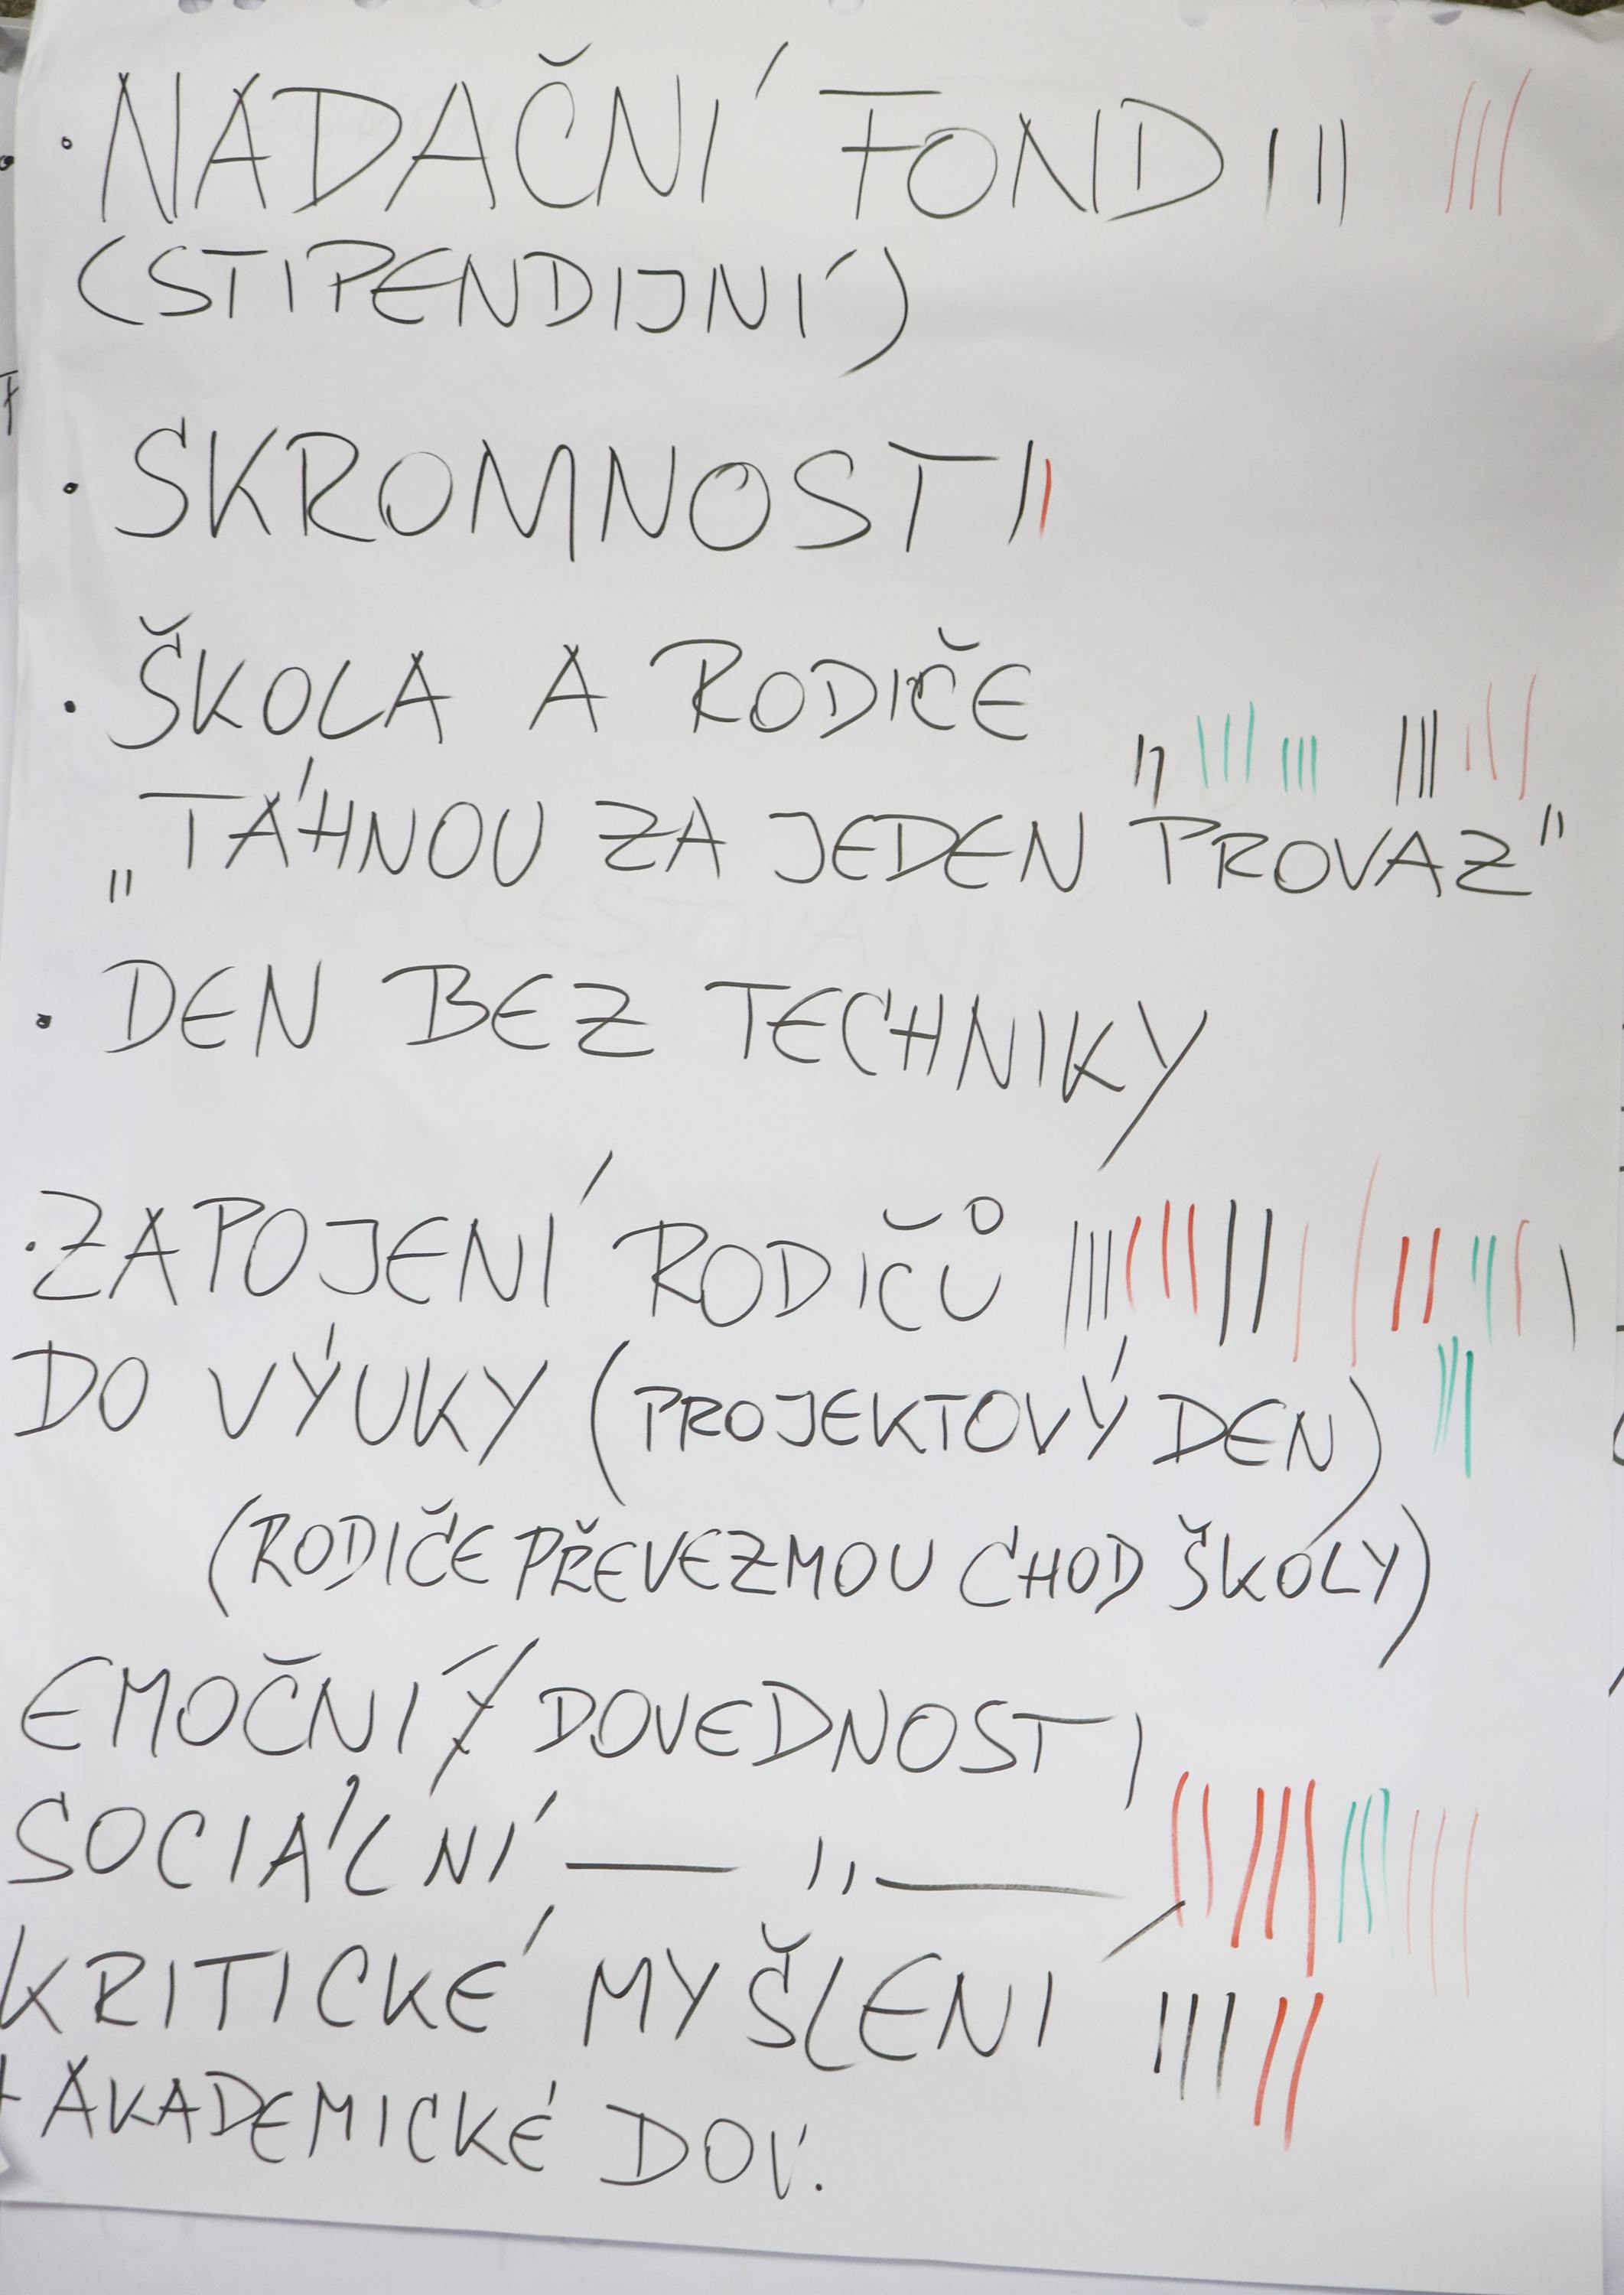 • NADAČNÍ FOND
(STIPENDIJNÍ)
• SKROMNOST
• ŠKOLA A RODIČE
„TÁHNOU ZA JEDEN PROVAZ"
• DEN BEZ TECHNIKY
• ZAPOJENÍ RODIČŮ
DO VÝUKY (PROJEKTOVÝ DEN)
(RODIČE PŘEVEZMOU CHOD ŠKOLY)
EMOČNÍ / DOVEDNOSTI
SOCIÁLNÍ — ,, —
KRITICKÉ MYŠLENÍ
+ AKADEMICKÉ DOV.